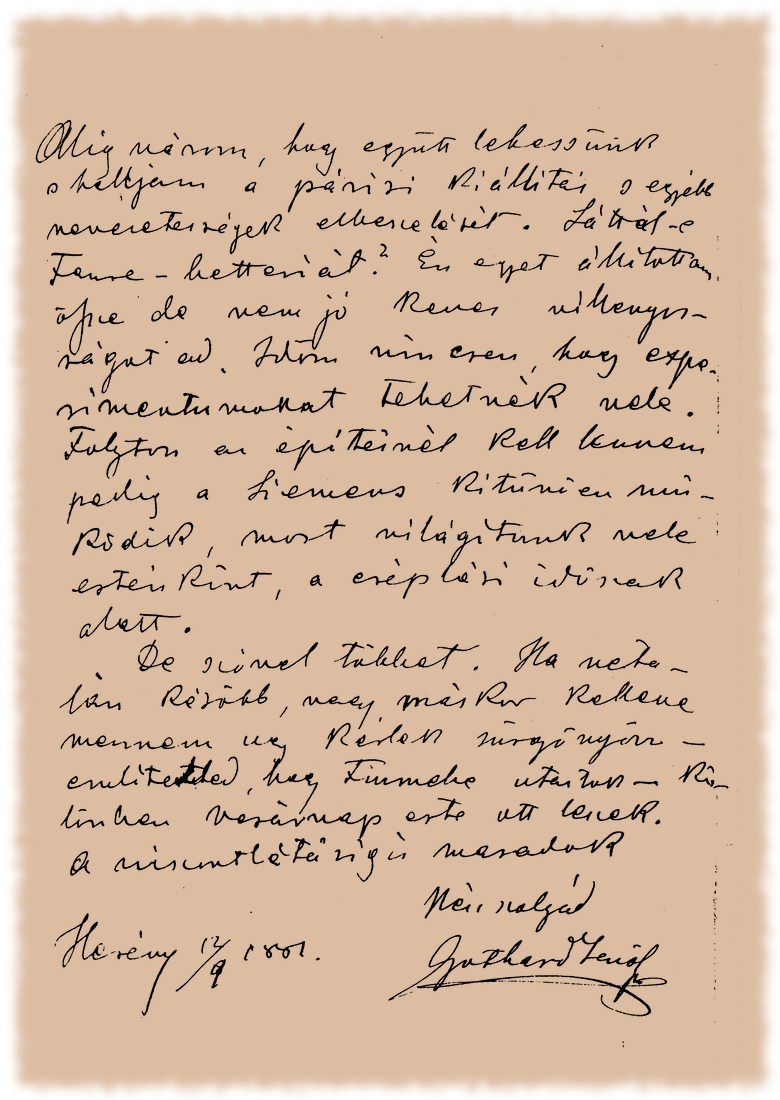 Alig várom, hogy együtt lehessünk
s halljam a párisi kiállitás s egyébb
nevezetességek elbeszelését. Láttál-e
Faure-batteriát? Én egyet állitottam
össze de nem jó keves villanyos-
ságot ad. Időm nincsen, hogy expe-
rimentumokat tehetnék vele.
Folyton az építésnél kell lennem
pedig a Siemens kitünően mü-
ködik, most világitunk vele
esténként, a cséplési idősnak
alatt.
De szóval többet. Ha neta-
lán később, vagy máskor kellene
mennem ugy kérlek sürgönyözz -
emlitetted, hogy Fiumebe utaztok - Kü-
lönben vasárnap este ott leszek.
A viszontlátásig is maradok
kész szolgád
Herény 12/9 1881.
Gothard Jenő